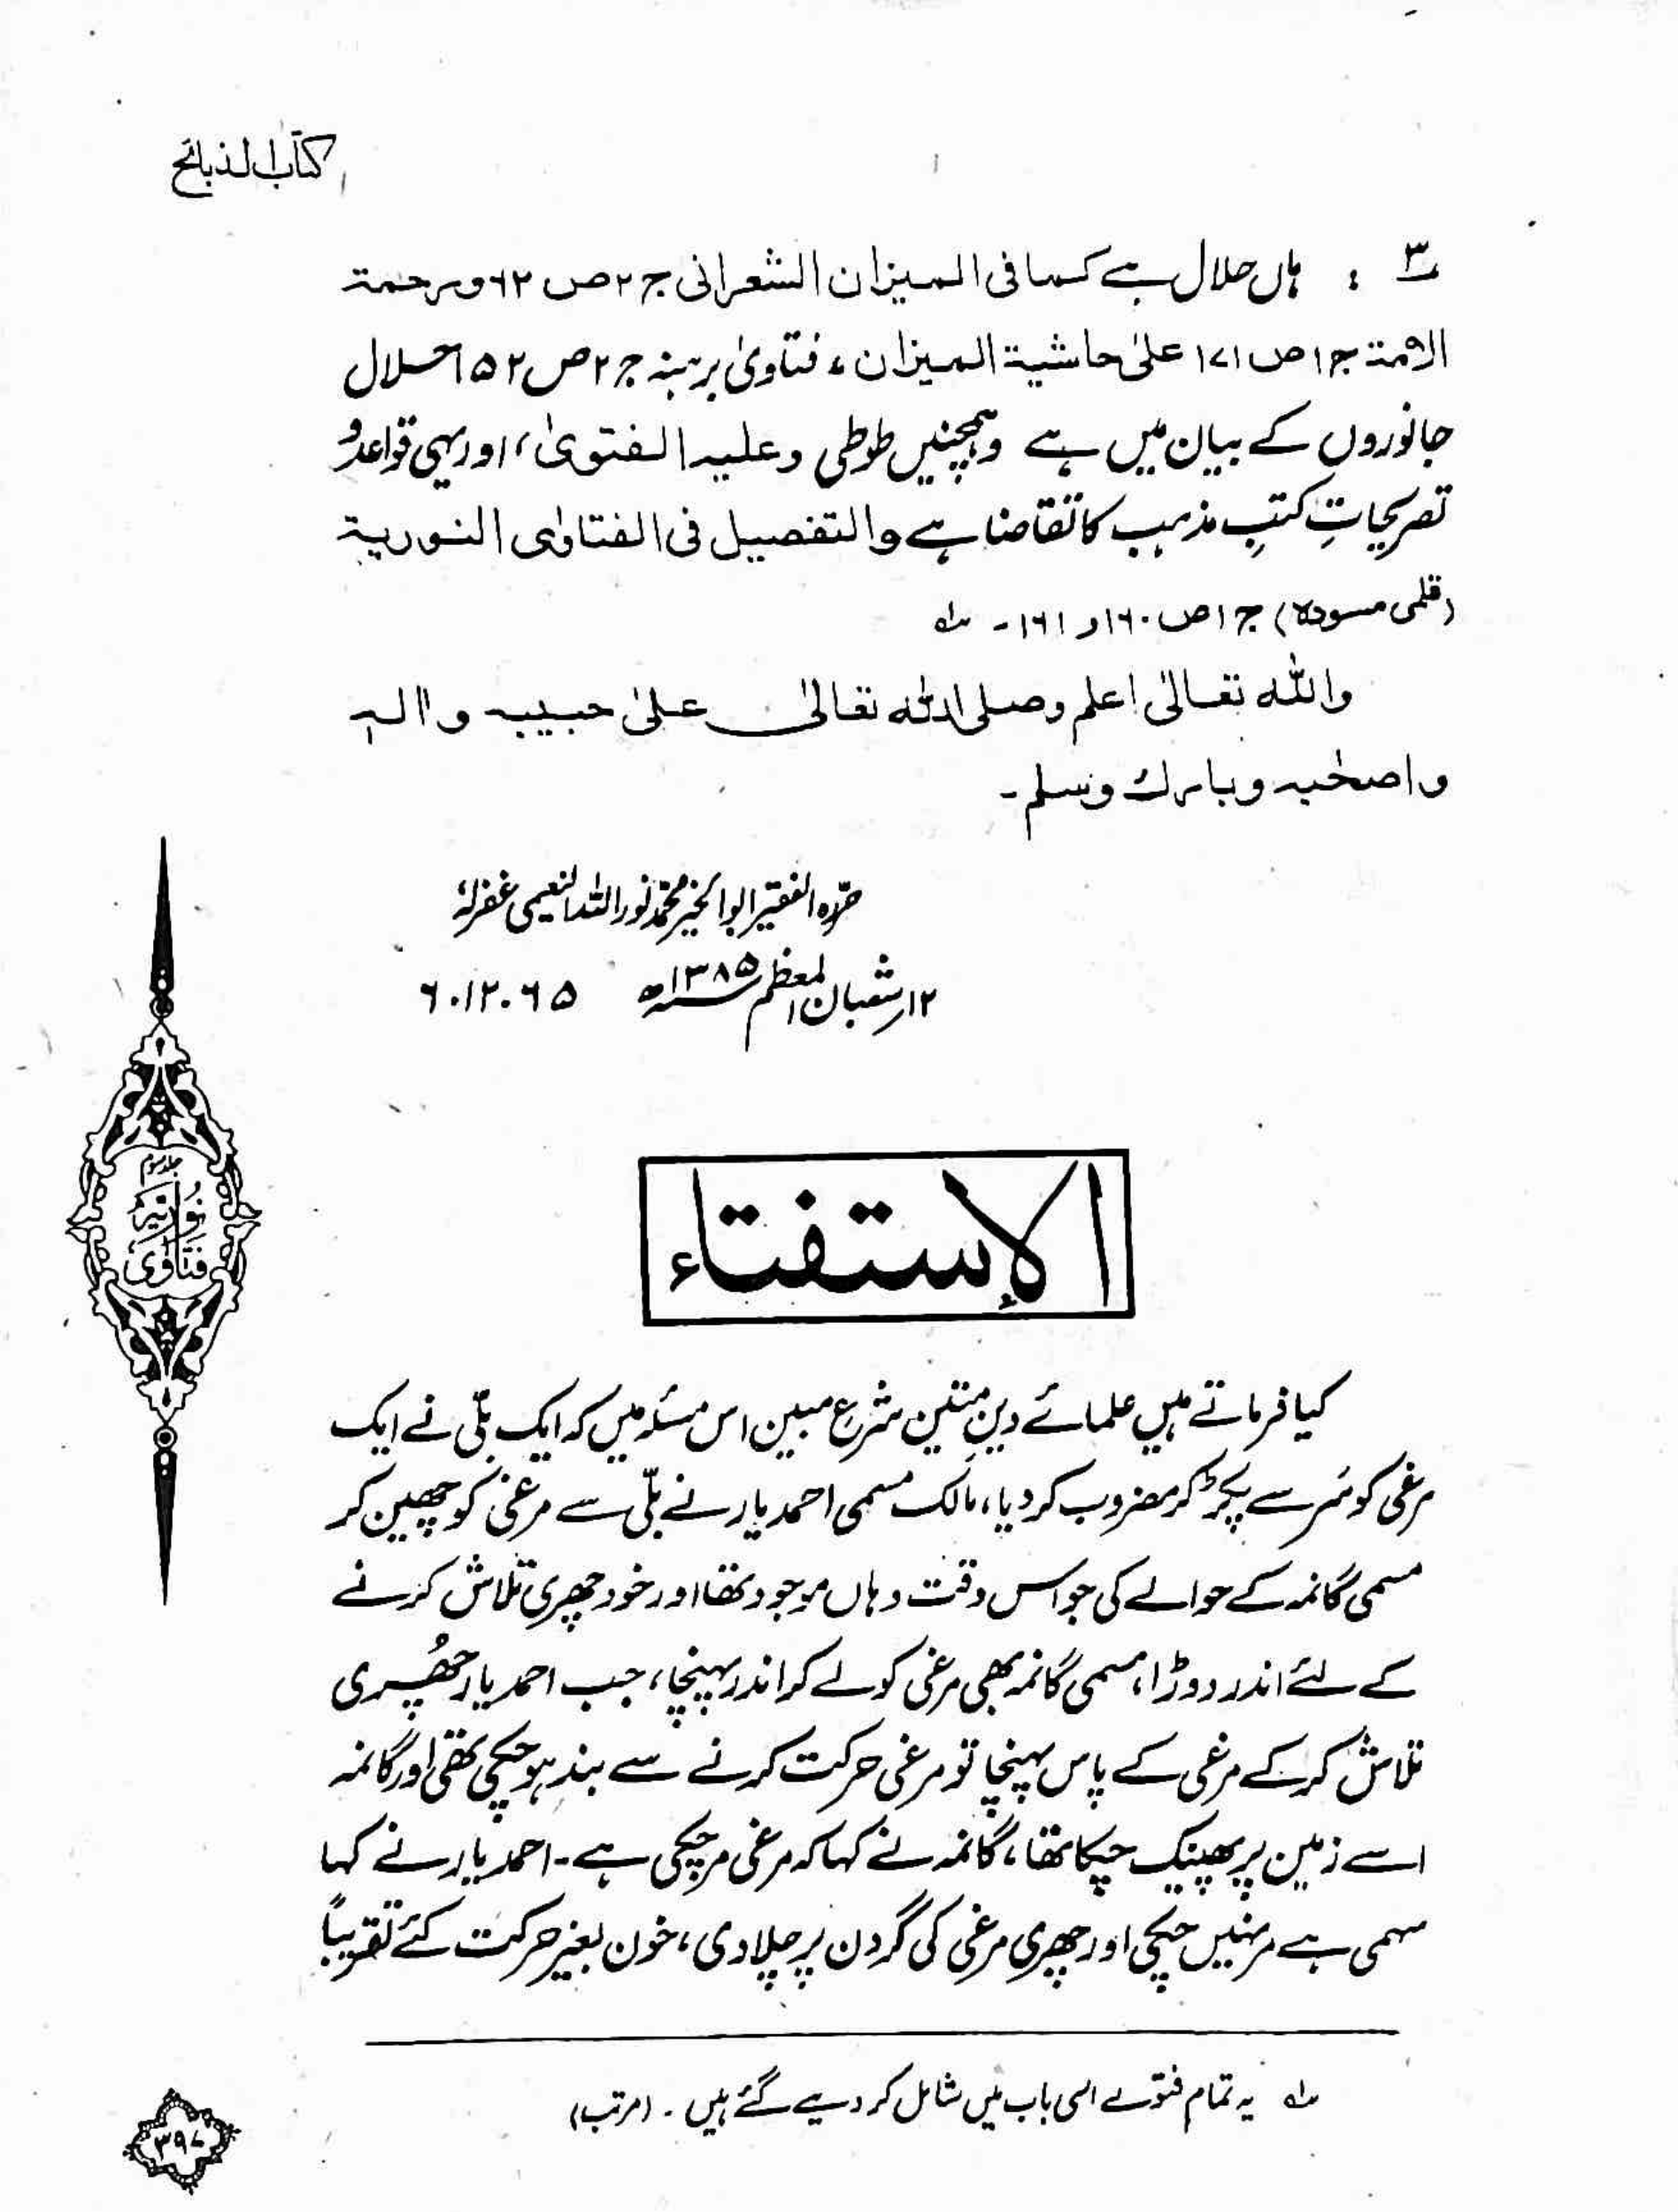 کتاب الذبائح
۳ : ہاں حلال ہے کما فی المیزان الشعرانی ج ۲ ص ۶۲ و رحمة
الامة ج ۱ ص ۱۷۱ علیٰ حاشیة المیزان ، فتاویٰ برہنہ ج ۲ ص ۱۵۲ حلال
جانوروں کے بیان میں ہے وہمچنیں طوطی وعلیہ الفتویٰ، اور یہی قواعد و
تصریحاتِ کتبِ مذہب کا تقاضا ہے والتفصیل فی الفتاویٰ النوریة
(قلمی مسودہ) ج ۱ ص ۱۶۰ و ۱۶۱ ۔ ؎۱
واللّٰہ تعالیٰ اعلم وصلی اللّٰہ تعالیٰ علیٰ حبیبہ واٰلہ
واصحٰبہ وبارک وسلم ۔
حرّرہ الفقیر ابوالخیر محمد نور اللّٰہ النعیمی غفرلہٗ
۱۲ر شعبان المعظم ۱۳۸۵ھ ۶۔۱۲۔۶۵
الإستفتاء
کیا فرماتے ہیں علمائے دینِ متین شرع مبین اس مسئلہ میں کہ ایک بلّی نے ایک
مرغی کو سَر سے پکڑ کر مضروب کر دیا، مالک مسمی احمد یار نے بلّی سے مرغی کو چھین کر
مسمی گانمہ کے حوالے کی جو اس وقت وہاں موجود تھا اور خود چھری تلاش کرنے
کے لئے اندر دوڑا، مسمی گانمہ بھی مرغی کو لے کر اندر پہنچا، جب احمد یار چھُری
تلاش کر کے مرغی کے پاس پہنچا تو مرغی حرکت کرنے سے بند ہو چکی تھی اور گانمہ
اسے زمین پر پھینک چکا تھا، گانمہ نے کہا کہ مرغی مر چکی ہے۔ احمد یار نے کہا
سہمی ہے مر نہیں چکی اور چھری مرغی کی گردن پر چلا دی، خون بغیر حرکت کئے تقریباً
؎۱ یہ تمام فتوے اسی باب میں شامل کر دیے گئے ہیں ۔ (مرتب)
جلد سوم
نوریہ
فتاویٰ
۳۹۷